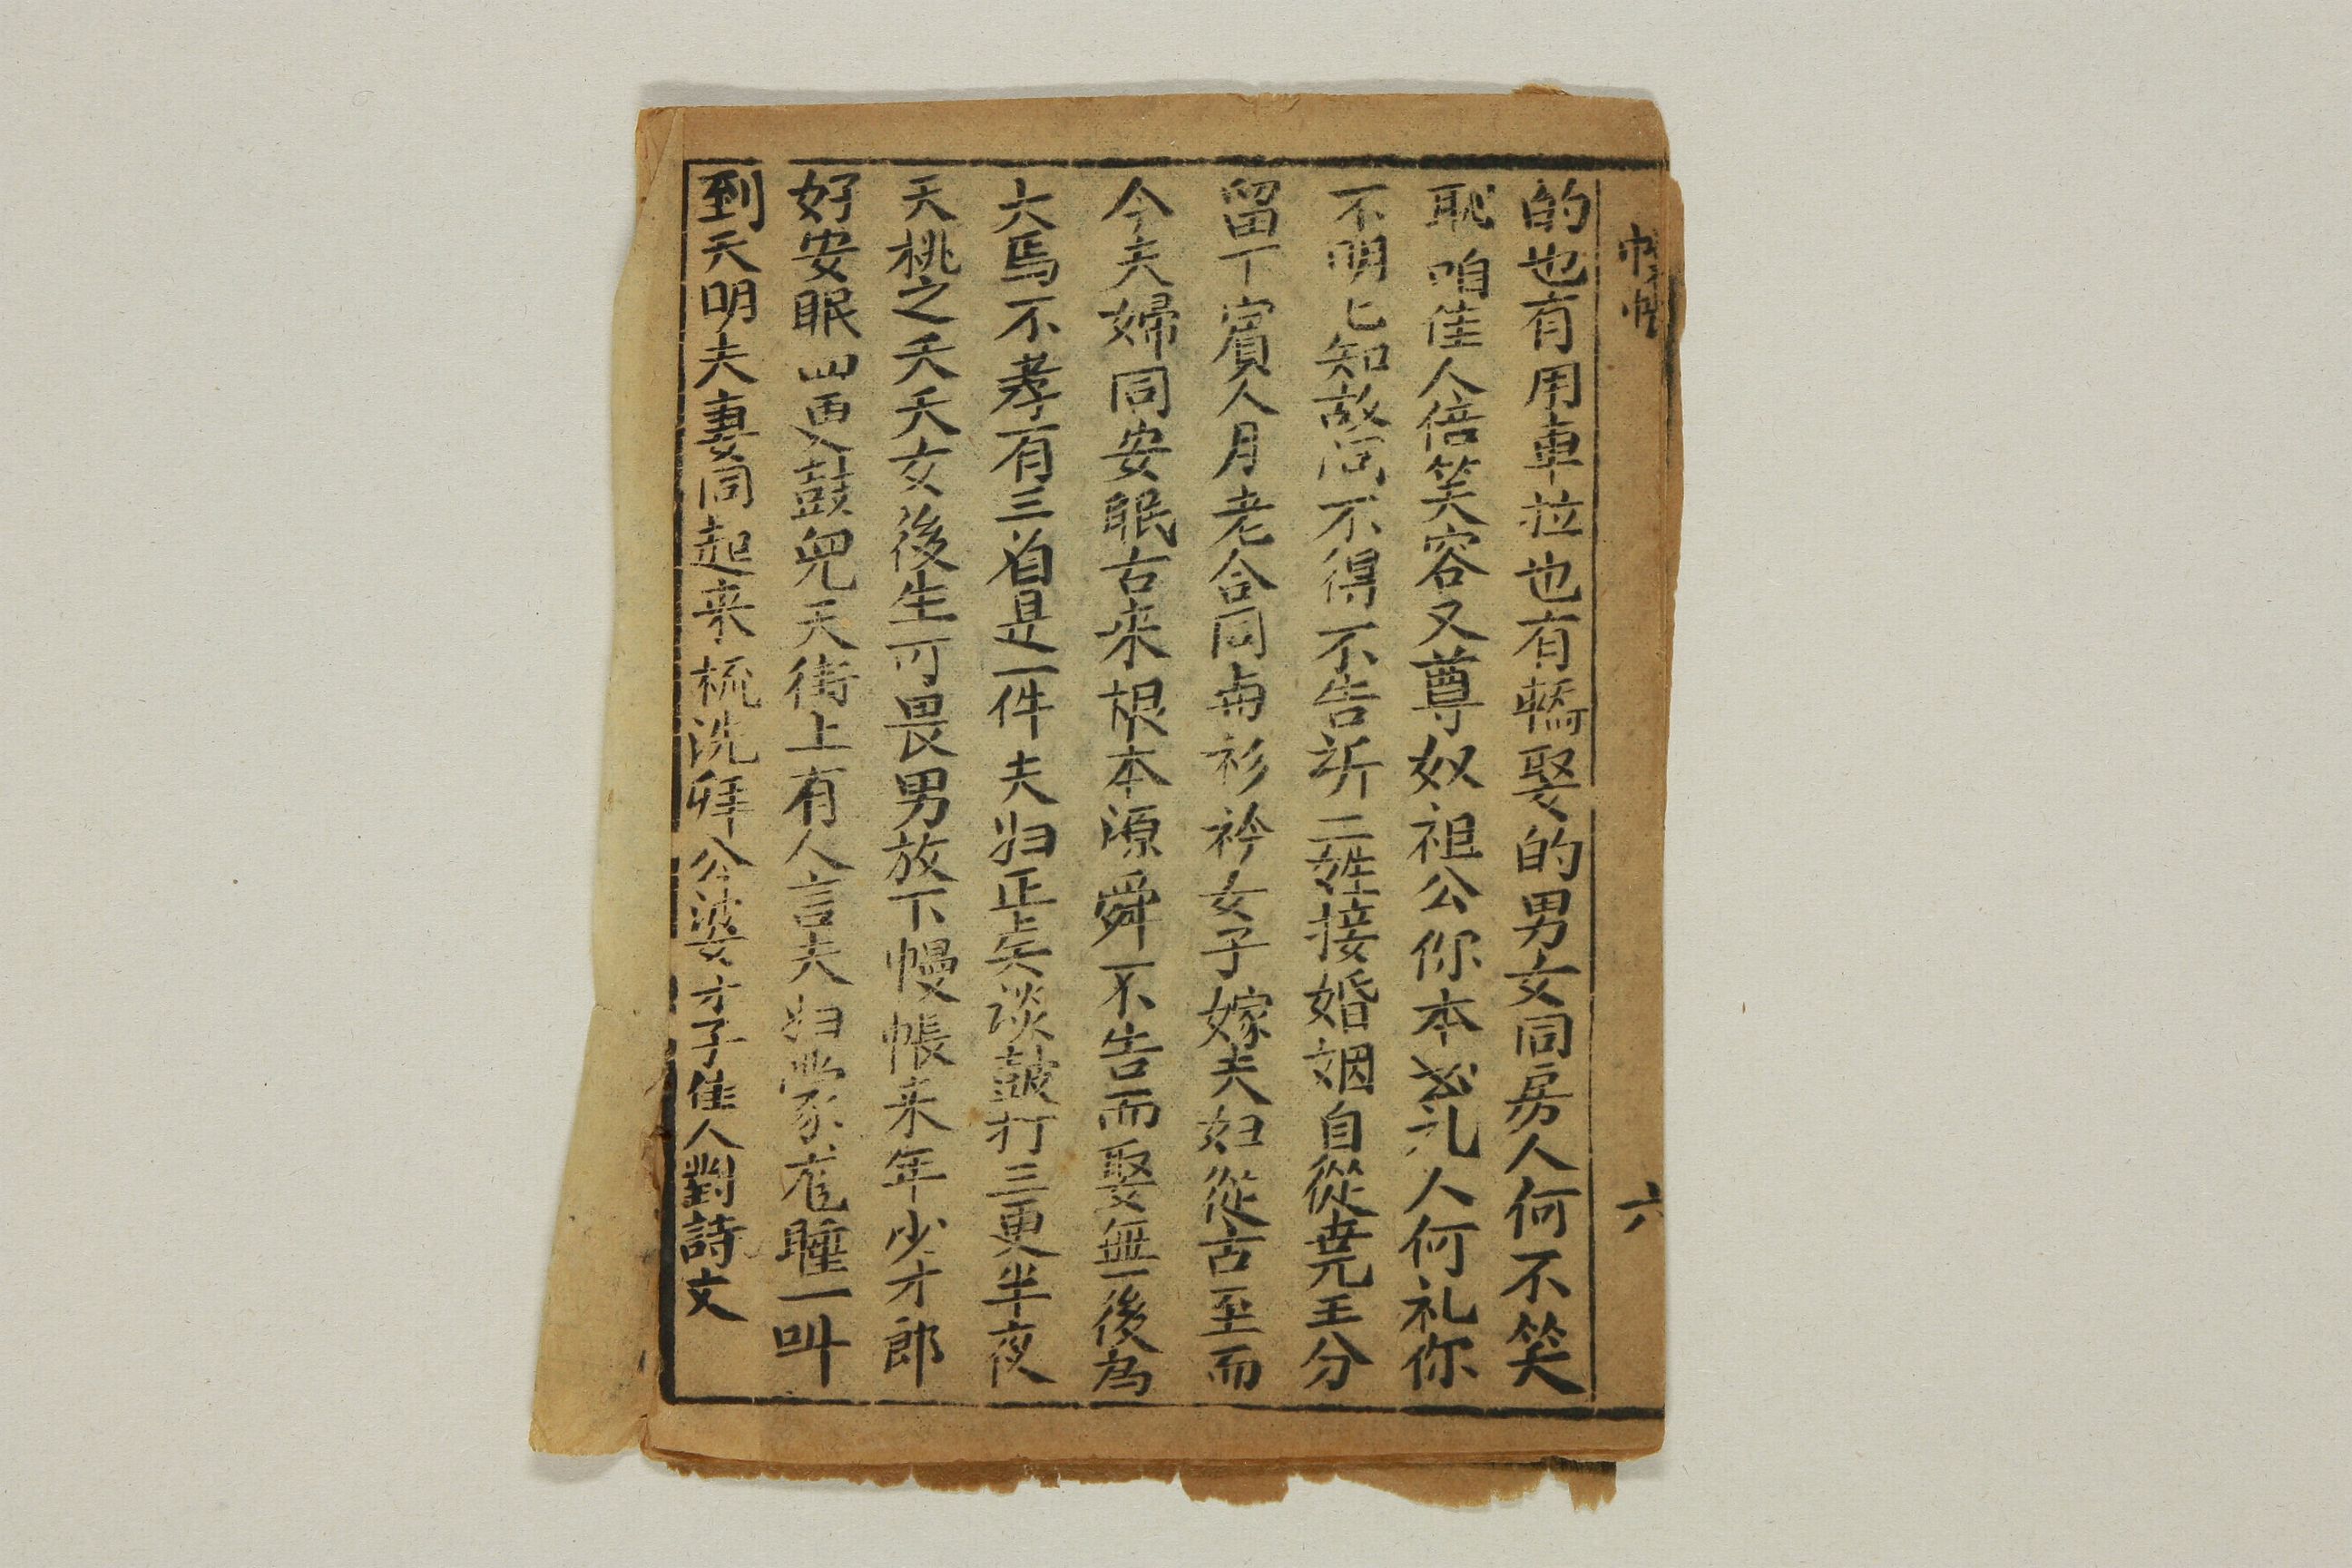 的也有用車拉也有轎娶的男女同房人何不笑
恥咱佳人倍笑容又尊奴祖公你本礼人何礼你
不明匕知故问不得不告訴二姓接婚姻自從堯王分
留下賓人月老合同衫衿女子嫁夫妇從古至而
今夫婦同安眠古来根本源舜不告而娶無後為
大焉不孝有三首是一件夫妇正矣談鼓打三更半夜
天桃之夭夭女後生可畏男放下幔帳来年少才郎
好安眠四更鼓兒天街上有人言夫妇睡一叫
到天明夫妻同起来梳洗拜公婆才子佳人對詩文
六